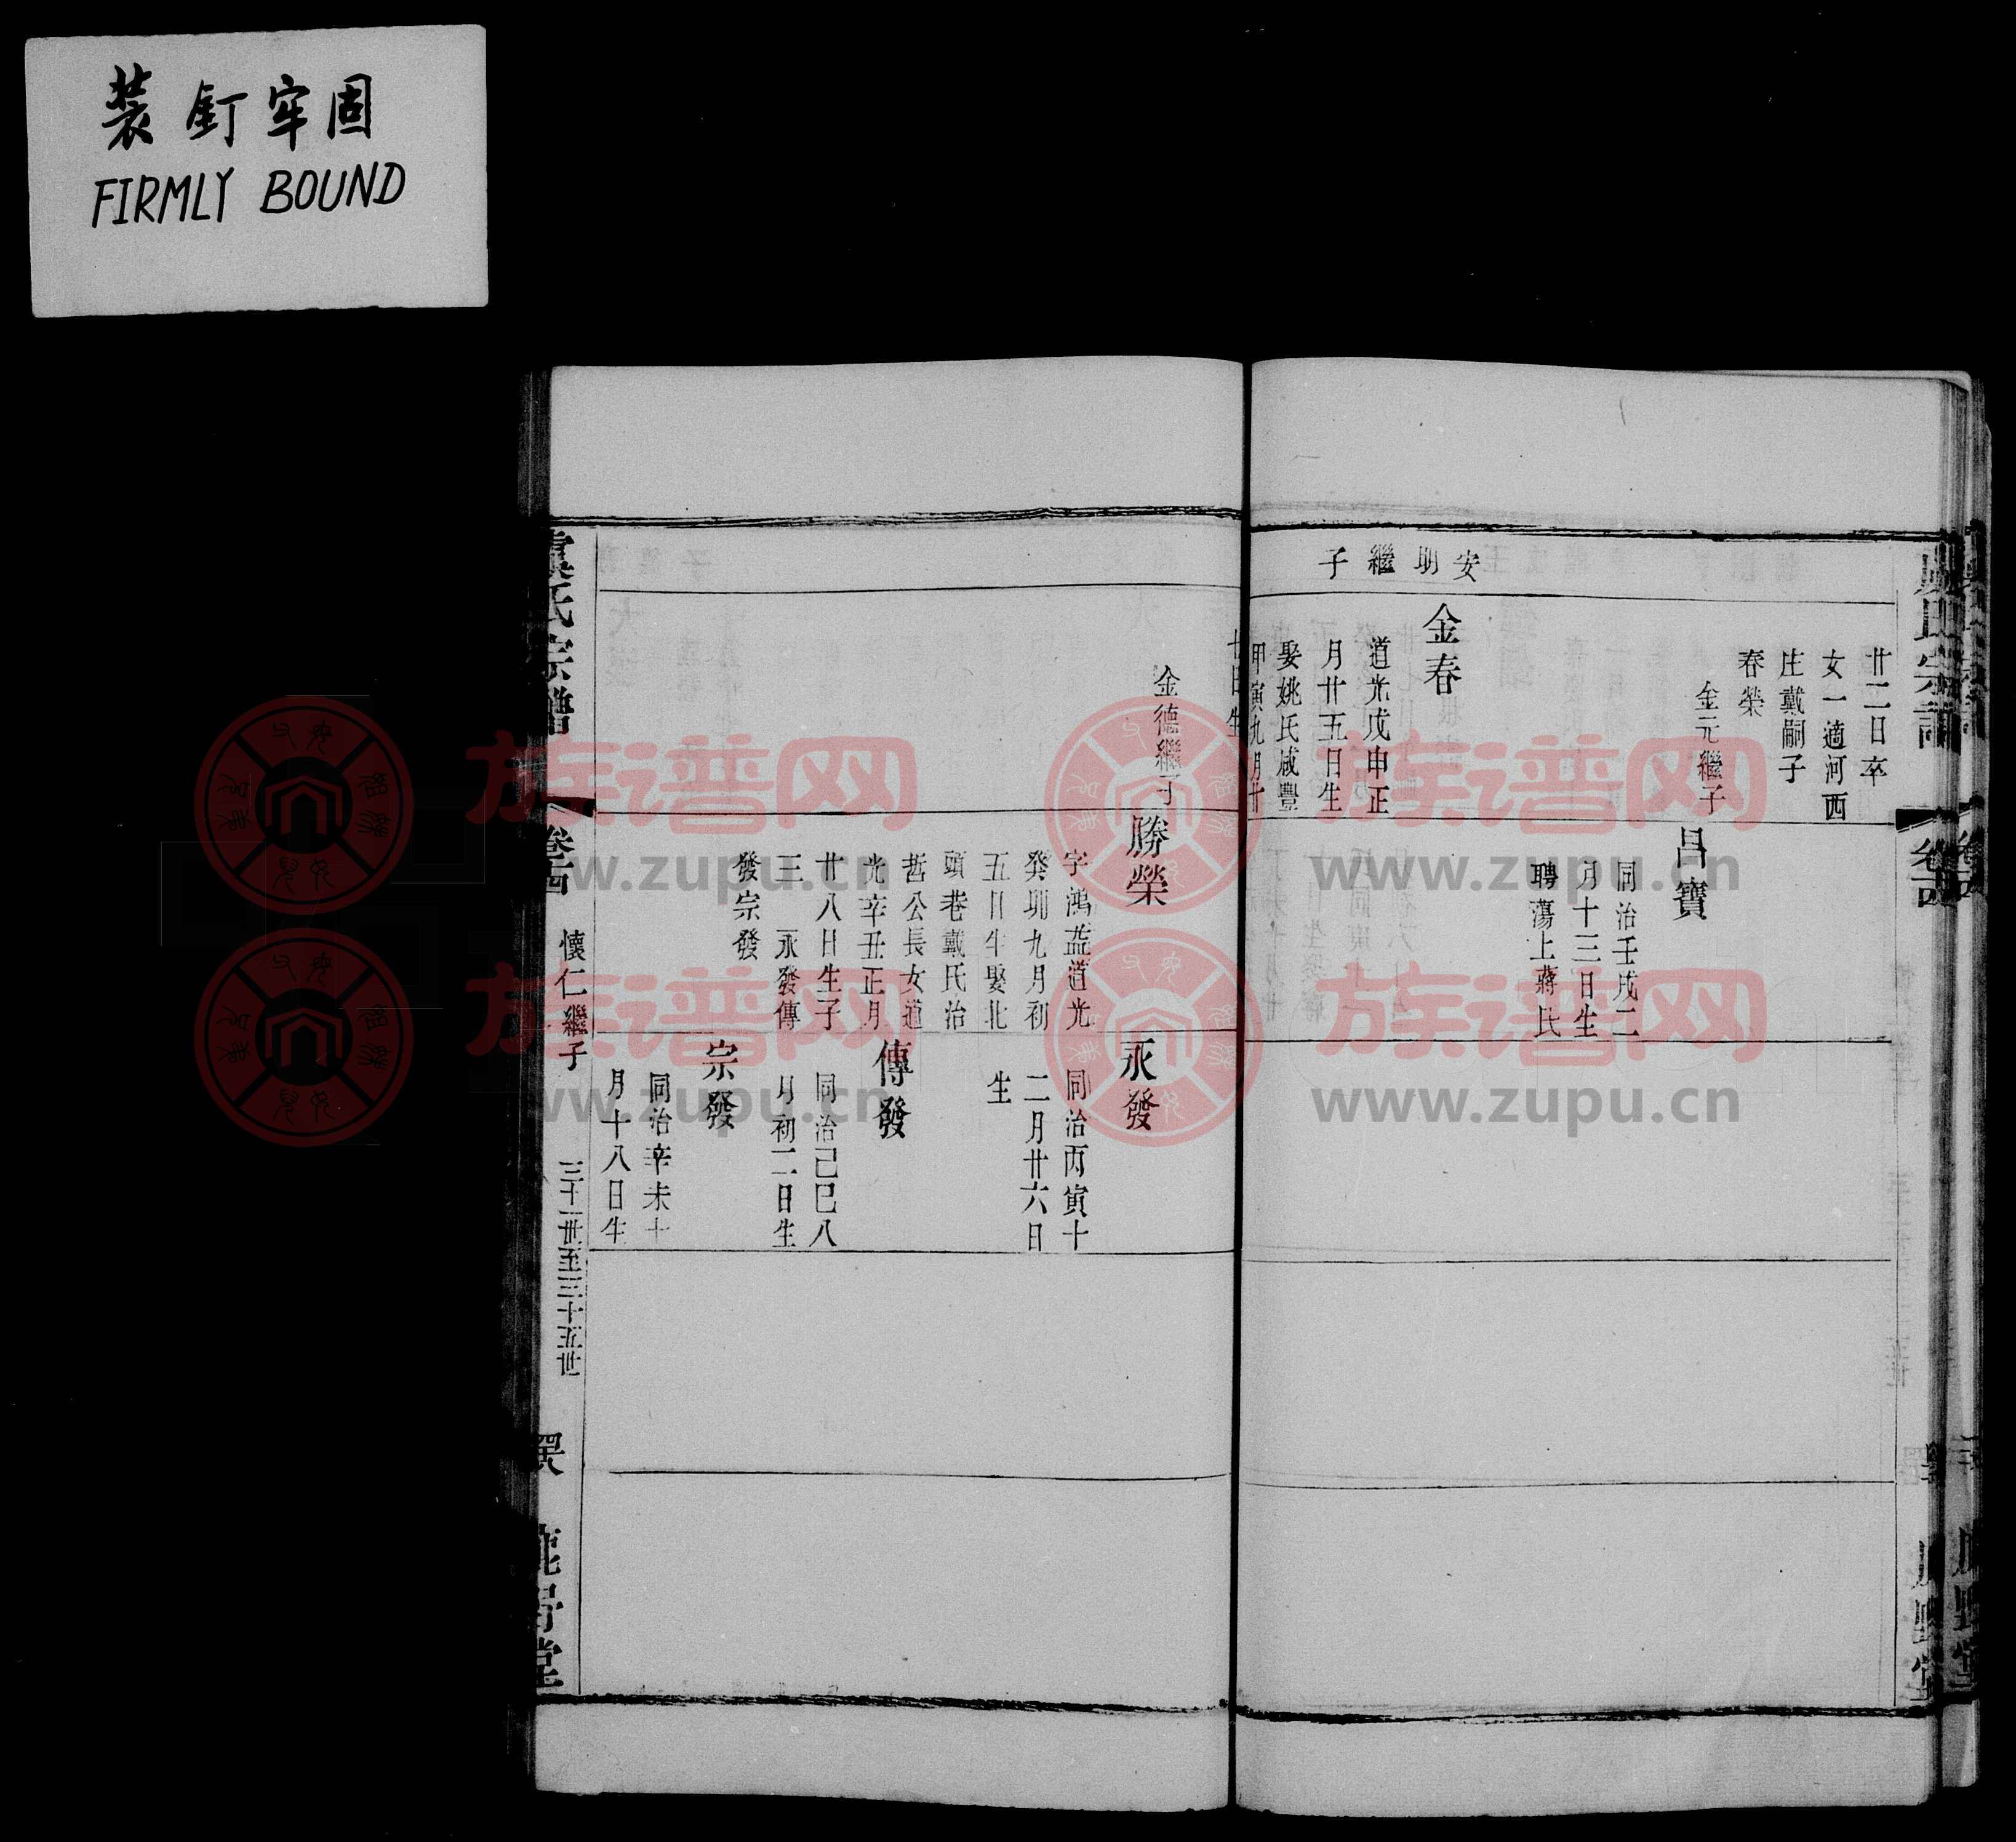 装釘牢固
FIRMLY BOUND
廿二日卒
女一適河西
庄戴嗣子
春榮
金元繼子
昌寶
同治壬戌二
月十三日生
聘蕩上蔣氏
安朋繼子
金春
道光戊申正
月廿五日生
娶姚氏咸豐
甲寅九月廿
廿日生
金德繼子
勝榮
字鴻益道光
癸卯九月初
五日生娶北
頭巷戴氏治
哲公長女道
光辛丑正月
廿八日生子
三 永發傳
發宗發
永發
同治丙寅十
二月廿六日
生
傳發
同治己巳八
月初二日生
宗發
同治辛未十
月十八日生
氏宗譜
懷仁繼子
三十一世至三十五世
堂
族谱网
www.zupu.cn
族谱网
www.zupu.cn
族谱网
www.zupu.cn
族谱网
www.zupu.cn